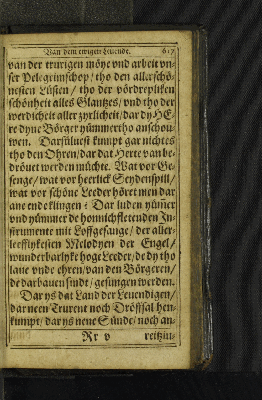 Van dem ewigen Leuende. 617
van der trurigen möye vnd arbeit vn-
ser Pelegrimschop / tho den allerschö-
nesten Lüsten / tho der vördrepliken
schönheit alles Glantzes / vnd tho der
werdicheit aller zyrlicheit / dar dy HE-
re dyne Börger yümmertho anschou-
wen. Darsüluest kumpt gar nichtes
tho den Ohren / dar dat Herte van be-
dröuet werden müchte. Wat vor Ge-
senge / wat vor heerlick Seydenspill /
wat vor schöne Leeder höret men dar
ane ende klingen? Dar luden yümmer
vnd yümmer de honnichfletenden In-
strumente mit Loffgesange / der aller-
leeffykesten Melodyen der Engel /
wunderbarlyke hoge Leeder / de dy tho
laue vnde ehren / van den Börgeren /
de darbauen sindt / gesungen werden.
Dar ys dat Land der Leuendigen /
dar neen Trurent noch Dröffsal hen-
kumpt / dar ys nene Sünde / noch an-
Rr v
reitzin-